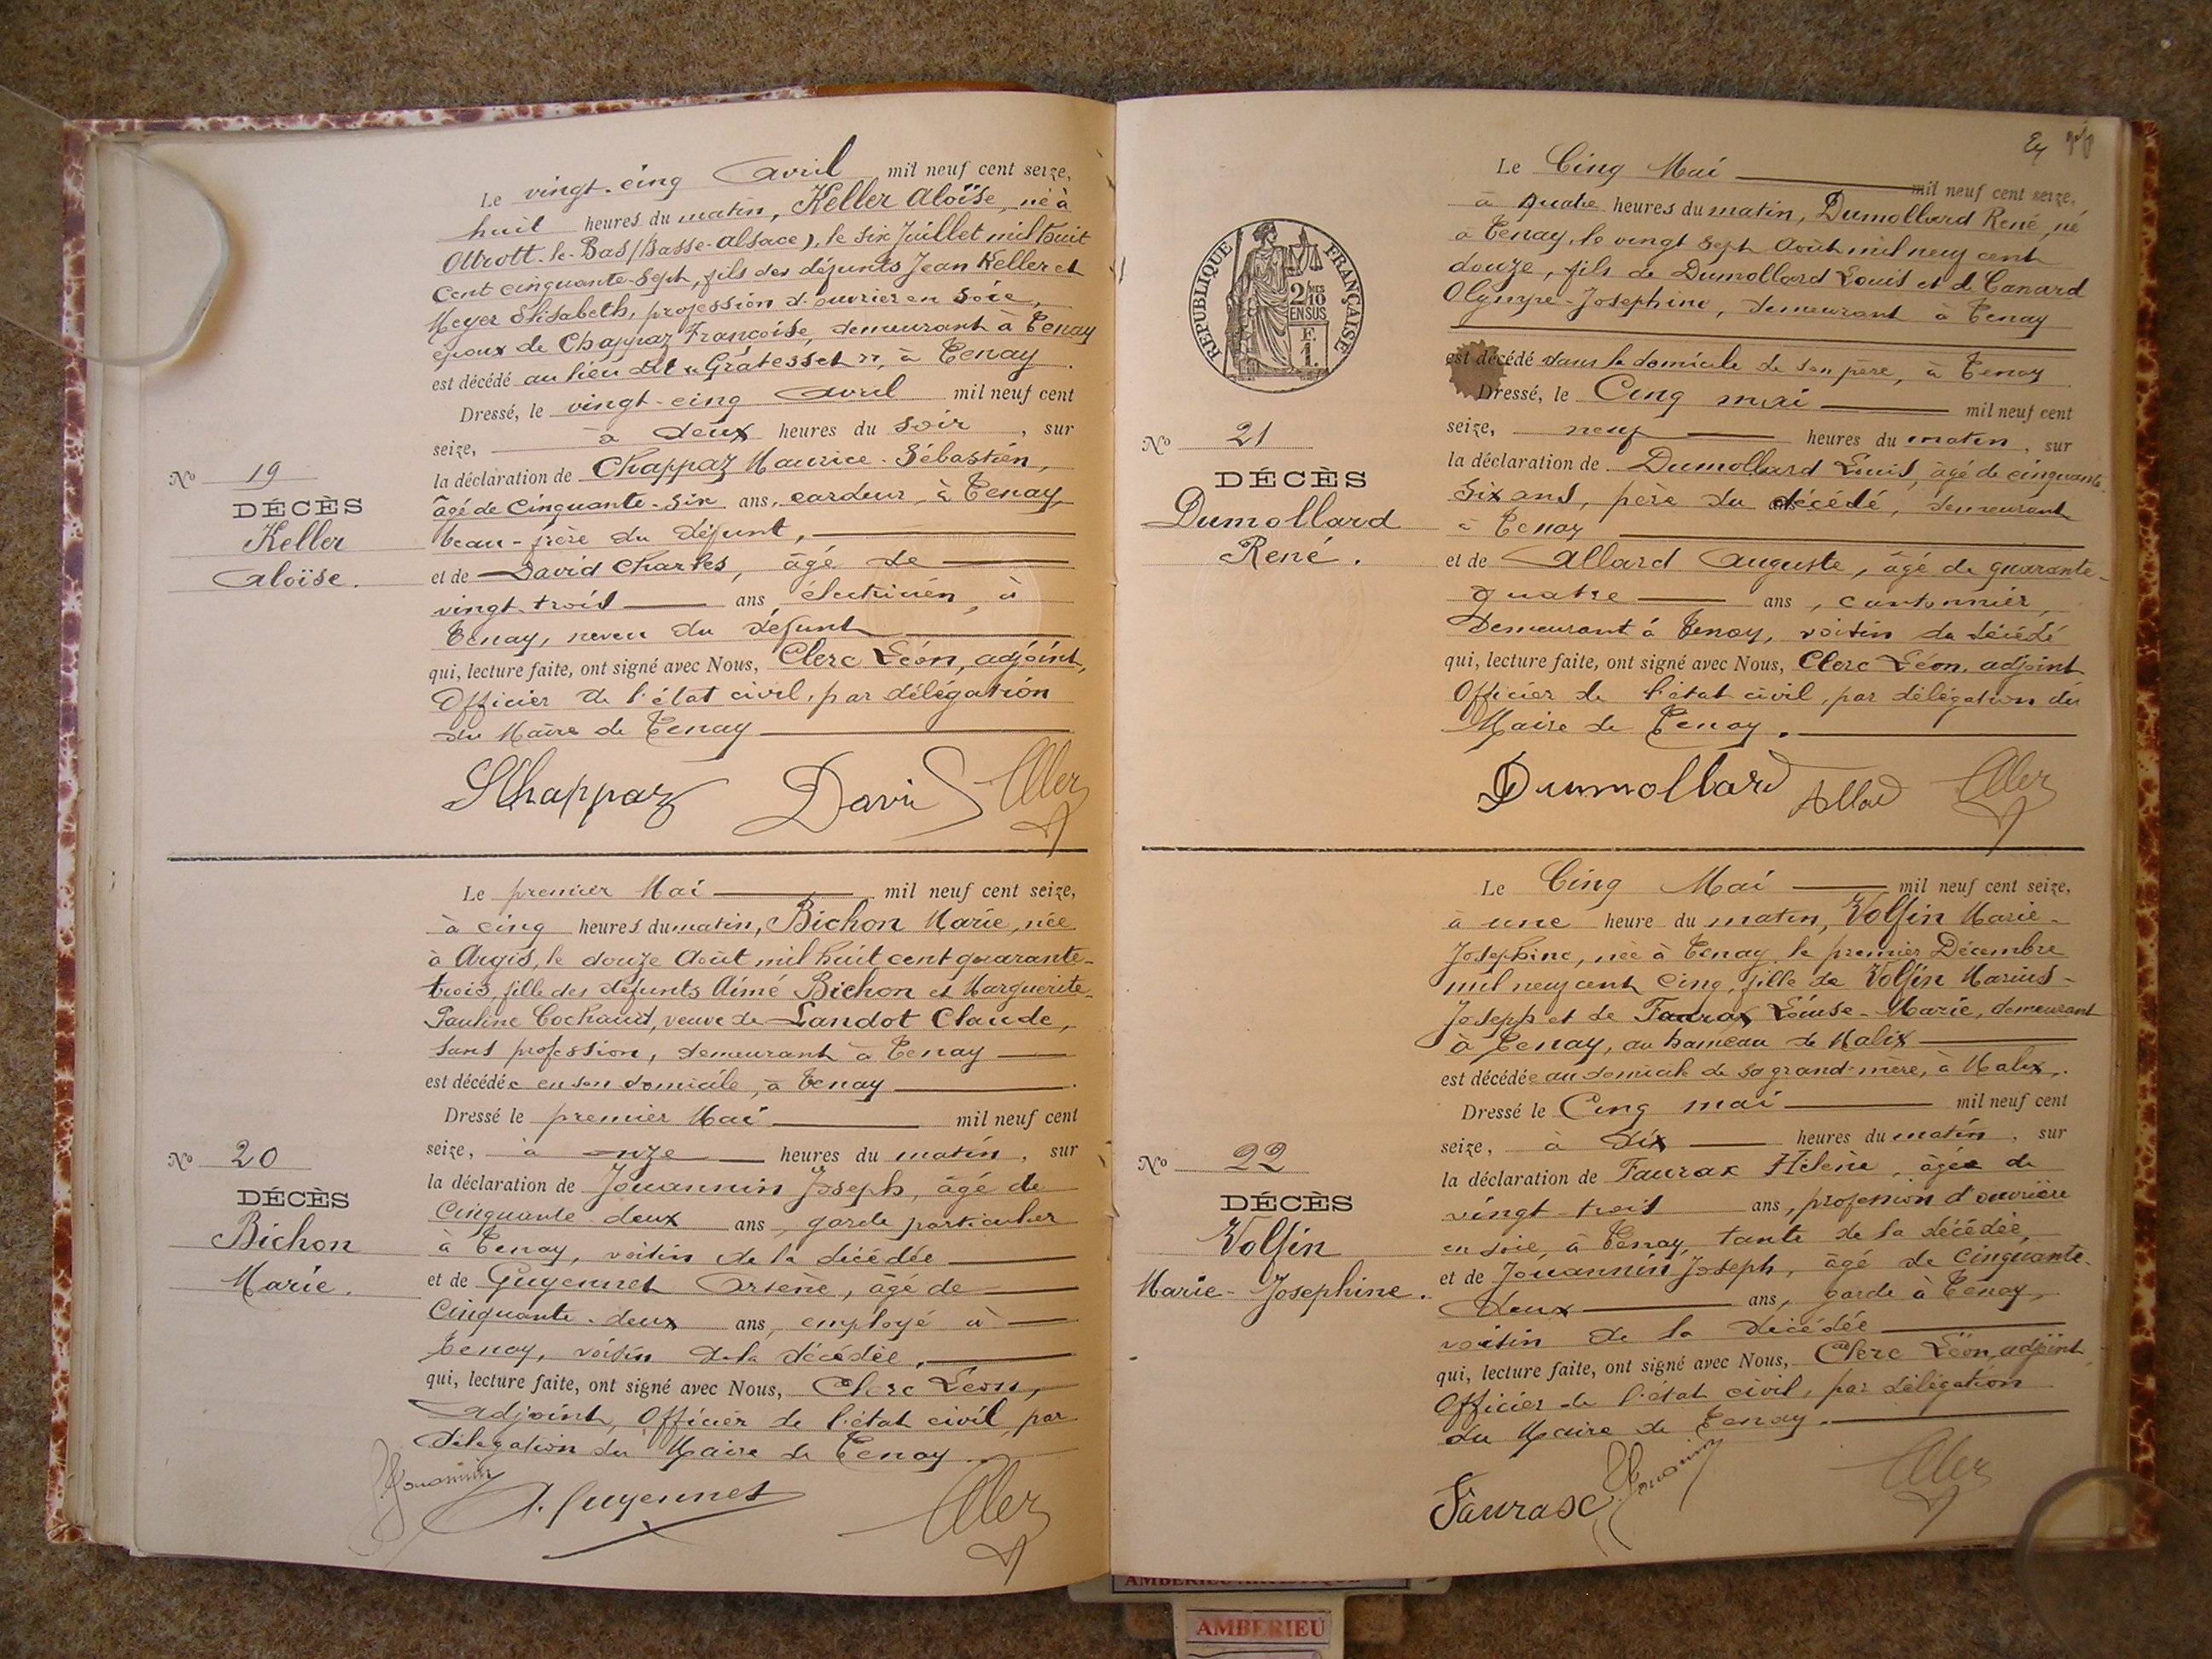 Le vingt-cinq Avril mil neuf cent seize,
huit heures du matin, Keller Aloïse, né à
Ottrott-le-Bas (Basse-Alsace), le six Juillet mil huit
cent cinquante-sept, fils des défunts Jean Keller et
Meyer Elisabeth, profession d'ouvrier en soie,
époux de Chappaz Françoise, demeurant à Tenay
est décédé au lieu dit « Gratesset », à Tenay.
Dressé, le vingt-cinq avril mil neuf cent
seize, à deux heures du soir, sur
la déclaration de Chappaz Maurice-Sébastien,
âgé de cinquante-six ans, cardeur, à Tenay,
beau-frère du défunt,
et de David Charles, âgé de
vingt-trois ans électricien, à
Tenay, neveu du défunt
qui, lecture faite, ont signé avec Nous, Clerc Léon, adjoint,
Officier de l'état civil, par délégation
du Maire de Tenay
No 19
DÉCÈS
Keller
Aloïse.
SChappaz David Clerc
Le premier Mai mil neuf cent seize,
à cinq heures du matin, Bichon Marie, née
à Argis, le douze Août mil huit cent quarante-
trois, fille des défunts Aimé Bichon et Marguerite-
Pauline Cochaud, veuve de Landot Claude,
sans profession, demeurant à Tenay
est décédée en son domicile, à Tenay.
Dressé le premier Mai mil neuf cent
seize, à onze heures du matin, sur
la déclaration de Jouannin Joseph, âgé de
Cinquante-deux ans, garde particulier
à Tenay, voisin de la décédée
et de Guyennet Arsène, âgé de
Cinquante-deux ans, employé à
Tenay, voisin de la décédée,
qui, lecture faite, ont signé avec Nous, Clerc Léon,
adjoint, Officier de l'état civil, par
délégation du Maire de Tenay
No 20
DÉCÈS
Bichon
Marie.
Jouannin A. Guyennet Clerc
Le Cinq Mai mil neuf cent seize,
à quatre heures du matin, Dumollard René, né
à Tenay, le vingt sept Août mil neuf cent
douze, fils de Dumollard Louis et de Canard
Olympe-Josephine, demeurant à Tenay
est décédé dans le domicile de son père, à Tenay.
Dressé, le Cinq mai mil neuf cent
seize, neuf heures du matin, sur
la déclaration de Dumollard Louis, âgé de cinquante-
six ans, père du décédé, demeurant
à Tenay
et de Allard Auguste, âgé de quarante-
quatre ans, cantonnier,
Demeurant à Tenay, voisin du décédé
qui, lecture faite, ont signé avec Nous, Clerc Léon, adjoint
Officier de l'état civil, par délégation du
Maire de Tenay.
RÉPUBLIQUE FRANÇAISE
2/10 EN SUS
F. 1.
No 21
DÉCÈS
Dumollard
René.
Dumollard Allard Clerc
Le Cinq Mai mil neuf cent seize,
à une heure du matin, Volfin Marie-
Josephine, née à Tenay, le premier Décembre
mil neuf cent cinq, fille de Volfin Marius-
Joseph et de Faurax Louise-Marie, demeurant
à Tenay, au hameau de Malix
est décédée au domicile de sa grand-mère, à Malix.
Dressé le Cinq mai mil neuf cent
seize, à dix heures du matin, sur
la déclaration de Faurax Hélène, âgée de
vingt-trois ans, profession d'ouvrière
en soie, à Tenay, tante de la décédée,
et de Jouannin Joseph, âgé de cinquante-
deux ans, garde à Tenay,
voisin de la décédée
qui, lecture faite, ont signé avec Nous, Clerc Léon, adjoint
Officier de l'état civil, par délégation
du Maire de Tenay.
No 22
DÉCÈS
Volfin
Marie-Josephine.
Faurax Jouannin Clerc
AMBERIEU